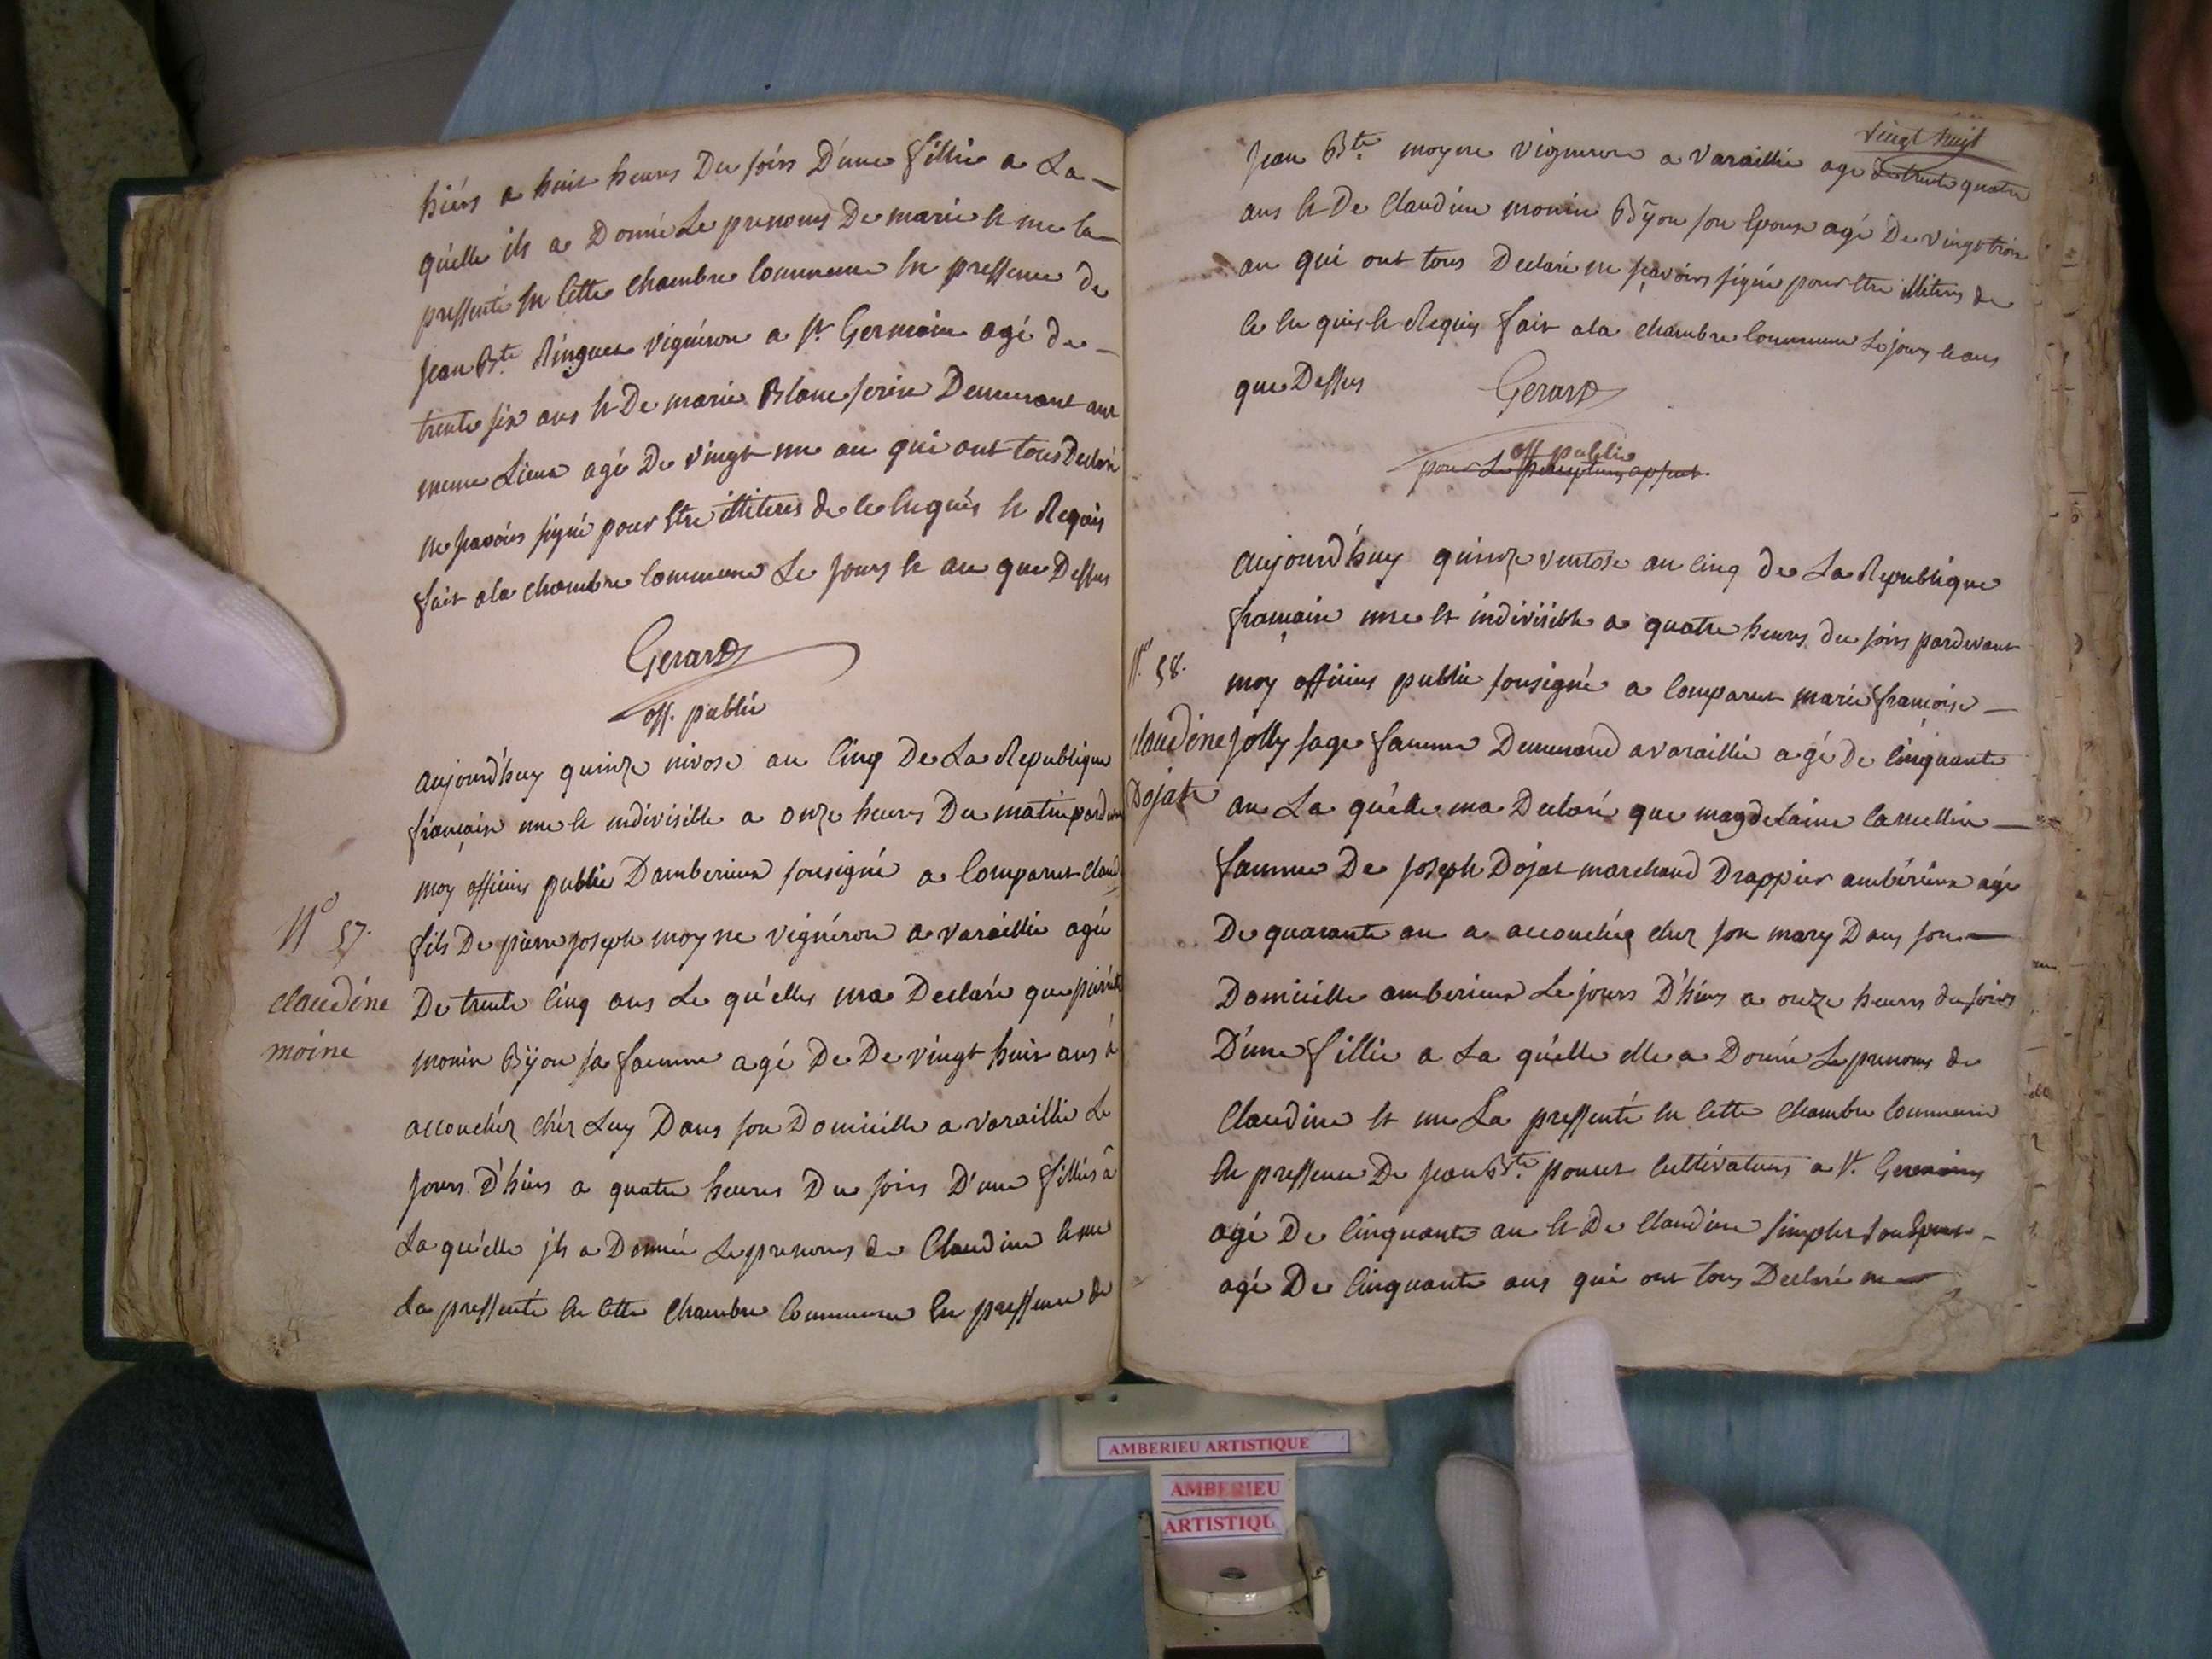 hiérs a huit heures Du soirs D'une fillie a La
qu'elle ils a Donné Le prenoms De marie et me la
pressenté en Cette Chambre Commune en pressence de
jean Bte Ringuet vignéron a st Germain agé de
trente six ans et De marie Blanc serine Demurant au
meme Lieux agé De vingt un an qui ont tous Declaré
ne savoirs signé pour être illiteres de ce enquis et Requis
fait a la chambre Commune Le jours et an que Dessus
Gerard
off. public
aujourd'huy quinze nivose an Cinq De La Republique
française une et indivisible a onze heures Du matin pardevant
moy officiers public Damberieux sousigné a Comparut Claude
fils De pierre joseph moyne vignéron a varaillie agé
De trente Cinq ans Le qu'elles ma Declaré que pierrette
monin Bijon sa famme agé De De vingt huit ans à
accouchéz chéz Luy Dans son Domicille a varaillie Le
jours D'hiers a quatre heures Du soirs D'une fillies à
La qu'elle ils a Donné Le prenoms de Claudine et me
La pressenté en Cette Chambre Commune En pressence de
No 57.
claudine
moine
vingt huit
jean Bte. moyne vigneron a varaillie agé de trente quatre
ans et De Claudine monin Bijon son Epouse agé De vingt trois
an qui ont tous Declaré ne sçavoirs signé pour être illiteres de
ce en quis et Requis fait a la chambre Commune Le jours et ans
que Dessus
Gerard
off public
aujourd'huy quinze ventose an Cinq de La Republique
française une et indivisible a quatre heures du soirs pardevant
moy officiers public sousigné a Comparut marie françoise
jolly sage famme Demurand a varaillie agé De Cinquante
an La qu'elle ma Declaré que magdelaine
famme De joseph Dojat marchand Drappier ambérieux agé
De quarante an a accouchéz chez son mary Dans son
Domicille amberieux Le jours D'hiers a onze heures du soirs
D'une fillie a La qu'elle elle a Donné Le prenoms de
Claudine et me La pressenté en Cette Chambre Commune
En pressence De jean Bte. poncet Cultivateurs a st. Germains
agé De Cinquante an et De Claudine simplet son Epouse
agé De Cinquante ans qui ont tous Declaré ne
No. 58.
claudine
Dojat
AMBERIEU ARTISTIQUE
AMBERIEU
ARTISTIQU